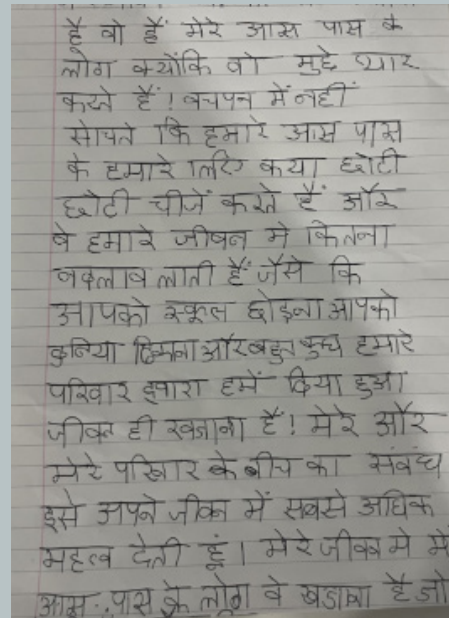 है वो हैं मेरे आस पास के
लोग क्योंकि वो मुझे प्यार
करते हैं! बचपन में नहीं
सोचते कि हमारे आस पास
के हमारे लिए कया छोटी
छोटी चीजें करते हैं और
वे हमारे जीवन मे कितना
बदलाव लाती हैं जैसे कि
आपको स्कूल छोड़ना आपको
दुनिया दिखाना और बहुत कुछ हमारे
परिवार द्वारा हमें दिया हुआ
जीवन ही खजाना हैं! मेरे और
मेरे परिवार के बीच का संबंध
इसे अपने जीवन में सबसे अधिक
महत्व देती हूं। मेरे जीवन मे में
आस पास के लोग वे खजाना है जो